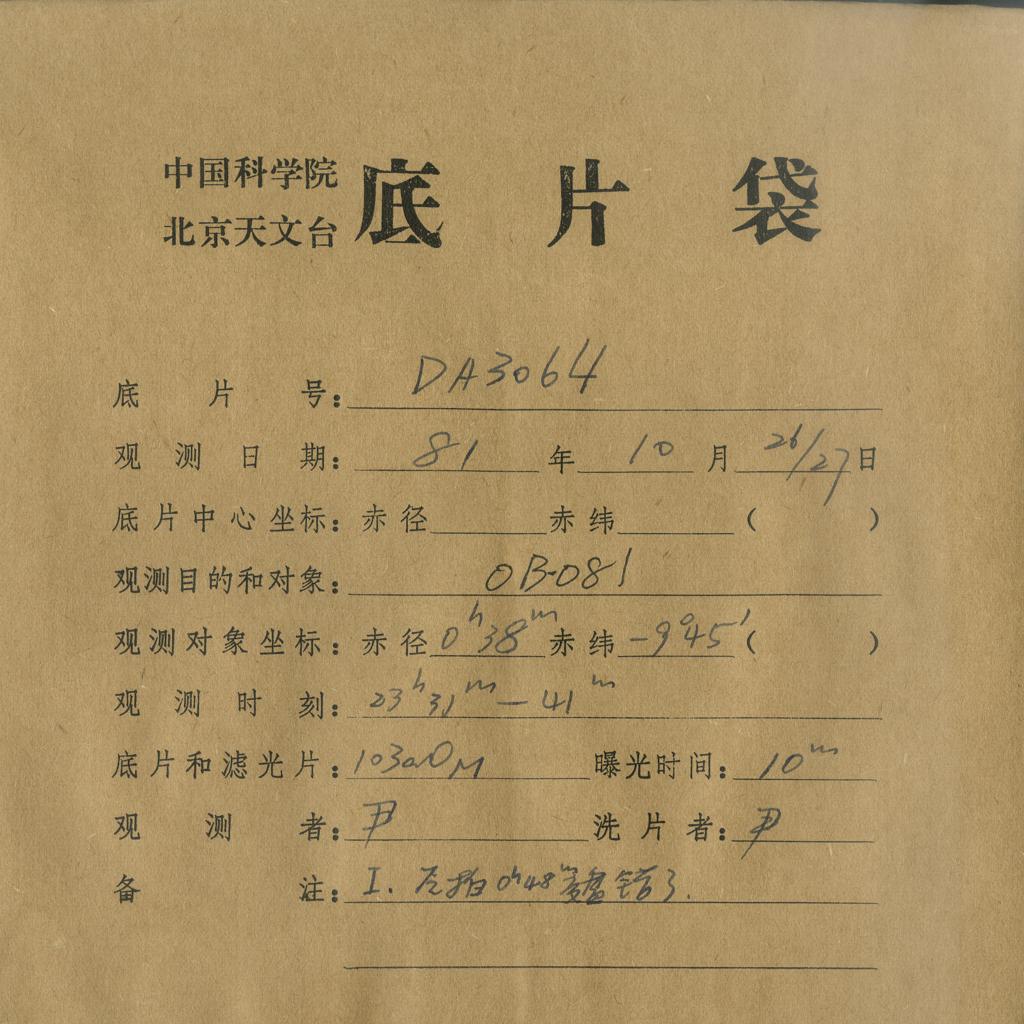 中国科学院
北京天文台
底片袋
底片号：DA3064
观测日期：81年10月26/27日
底片中心坐标：赤径 赤纬 （ ）
观测目的和对象：OB-081
观测对象坐标：赤径 0ʰ38ᵐ 赤纬 -9°45′（ ）
观测时刻：23ʰ31ᵐ—41ᵐ
底片和滤光片：103aO M 曝光时间：10ᵐ
观测者：尹 洗片者：尹
备注：I. 拍0ʰ48ᵐ 盘错了.